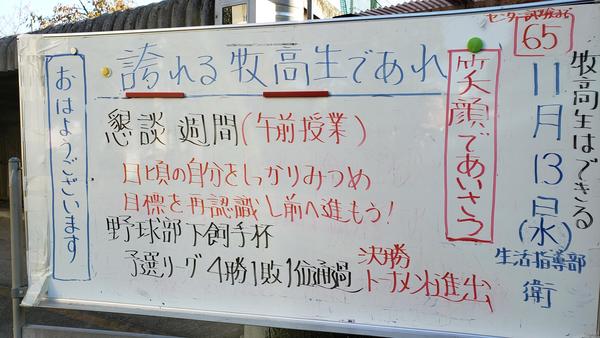 センター試験まで
65
牧高生はできる
11月13日(水)
生活指導部
衛
笑顔であいさつ
誇れる牧高生であれ
懇談週間(午前授業)
日頃の自分をしっかりみつめ
目標を再認識し前へ進もう!
野球部下飼手杯
予選リーグ4勝1敗1位通過
決勝
トーナメント進出
おはようございます